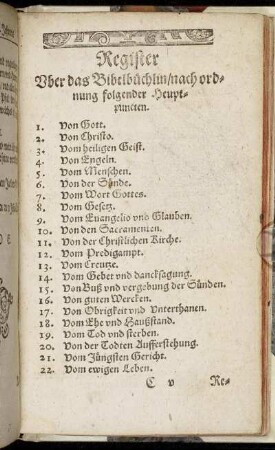 Register
Vber das Bibelbüchlin/nach ord-
nung folgender Heupt-
puncten.
1. Von Gott.
2. Von Christo.
3. Vom heiligen Geist.
4. Von Engeln.
5. Vom Menschen.
6. Von der Sünde.
7. Vom Wort Gottes.
8. Vom Gesetz.
9. Vom Euangelio vnd Glauben.
10. Von den Sacramenten.
11. Von der Christlichen Kirche.
12. Vom Predigampt.
13. Vom Creutze.
14. Vom Gebet vnd dancksagung.
15. Von Buß vnd vergebung der Sünden.
16. Von guten Wercken.
17. Von Obrigkeit vnd Vnterthanen.
18. Vom Ehe vnd Haußstand.
19. Vom Tod vnd sterben.
20. Von der Todten Aufferstehung.
21. Vom Jüngsten Gericht.
22. Vom ewigen Leben.
C v Re-